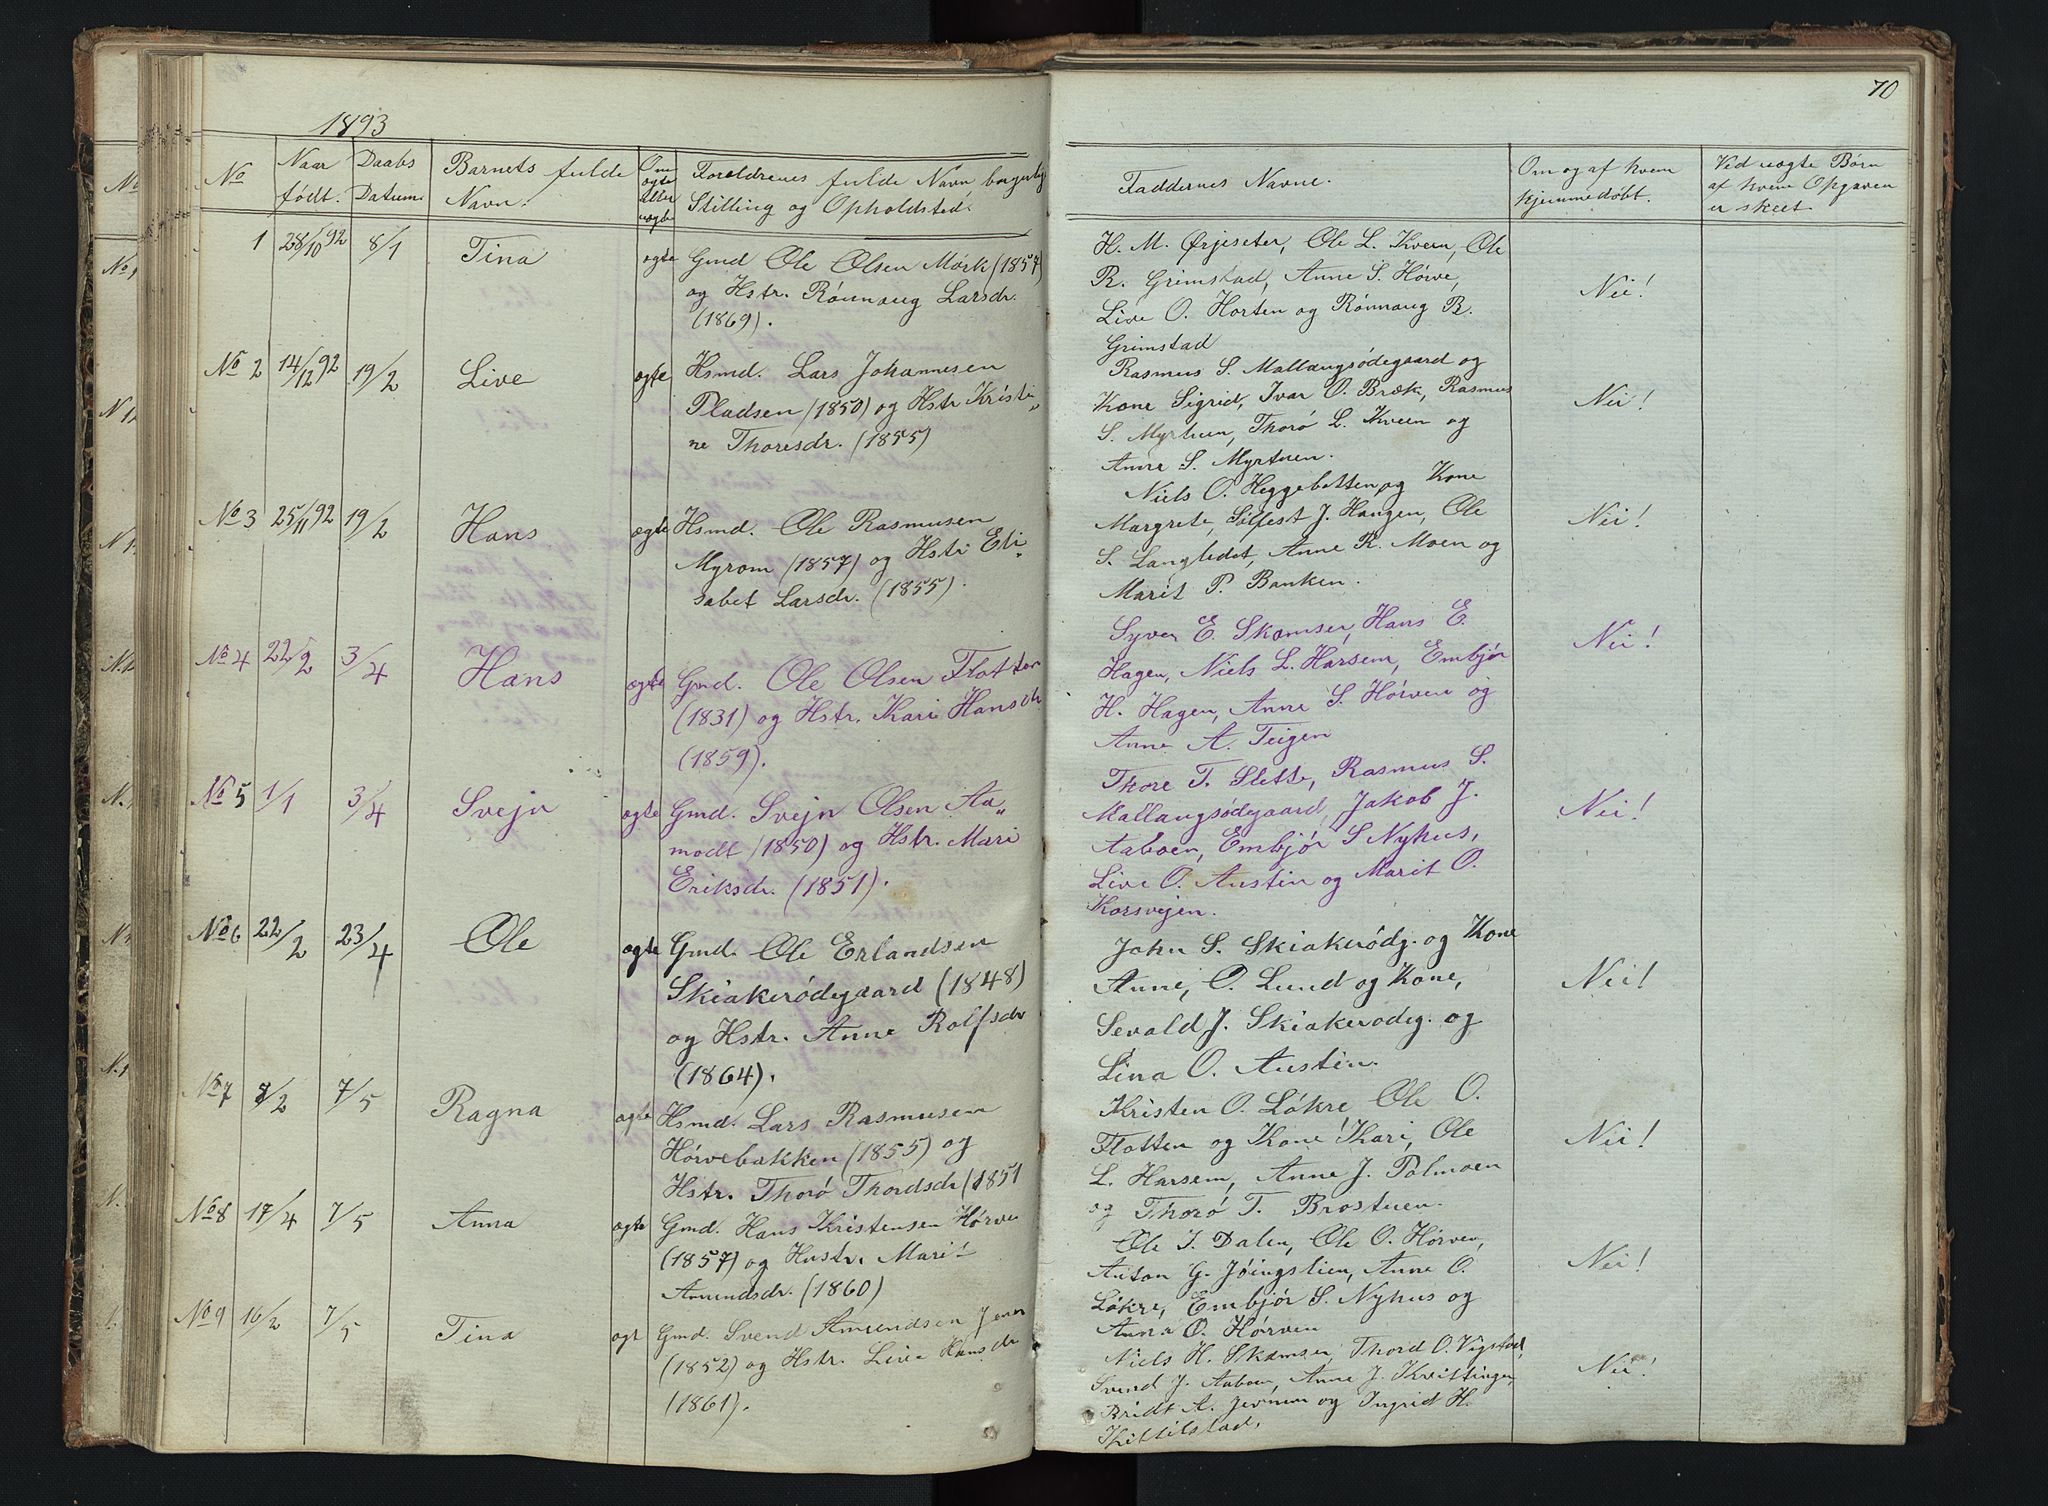 70
1893
No
Naar født.
Daabs Datum.
Barnets fulde Navn.
Om ægte eller uægte
Forældrenes fulde Navn, borgerlig Stilling og Opholdsted.
Faddernes Navne.
Om og af hvem hjemmedøbt.
Ved uægte Børn af hvem Opgaven er skeet.
1 28/10 92 8/1 Tina ægte
Gmd Ole Olsen Mørk (1857)
og Hstr. Rønnaug Larsdr.
(1869).
H. M. Ørjeseter, Ole L. Kveen, Ole
R. Grimstad, Anne S. Hørve,
Live O. Horten og Rønnaug R.
Grimstad
Nei!
No 2 14/12 92 19/2 Live ægte
Hsmd. Lars Johannesen
Pladsen (1850) og Hstr Kristi„
ne Thoresdr. (1855)
Rasmus S. Mallangsødegaard og
Kone Sigrid, Ivar O. Bræk, Rasmus
S. Myrtuen, Thorø L. Kveen og
Anne S. Myrtuen.
Nei!
No 3 25/11 92 19/2 Hans ægte
Hsmd. Ole Rasmusen
Myrom (1857) og Hstr Eli„
sabet Larsdr. (1855).
Niels O. Heggebotten og Kone
Margrete, Sølfest J. Haugen, Ole
S. Langledet, Anne R. Moen og
Marit P. Banken.
Nei!
No 4 22/2 3/4 Hans ægte
Gmd. Ole Olsen Flotten
(1831) og Hstr. Kari Hansdr
(1859).
Syver E. Skamser, Hans E.
Hagen, Niels L. Harsem, Embjør
H. Hagen, Anne S. Hørven og
Anne A. Teigen
Nei!
No 5 1/1 3/4 Svejn ægte
Gmd. Svejn Olsen Aa„
modt (1850) og Hstr. Mari
Eriksdr. (1851).
Thore T. Slette, Rasmus S.
Mallangsødegaard, Jakob J.
Aaboen, Embjør S Nyhus,
Live O. Austin og Marit O.
Korsvejen.
Nei!
No 6 22/2 23/4 Ole ægte
Gmd. Ole Erlandsen
Skiakerødegaard (1848)
og Hstr. Anne Rolfsdr
(1864).
John S. Skiakerødg. og Kone
Anne, O. Lund og Kone,
Sevald J. Skiakerødg. og
Lina O. Austin.
Nei!
No 7 8/2 7/5 Ragna ægte
Hsmd. Lars Rasmusen
Hørvebakken (1855) og
Hstr. Thorø Thordsdr (1851
Kristen O. Løkre, Ole O.
Flotten og Kone Kari, Ole
L. Harsem, Anne J. Polmoen
og Thorø T. Brostuen.
Nei!
No 8 17/4 7/5 Anna ægte
Gmd. Hans Kristensen Hørven
(1857) og Hustr. Marit
Amundsdr. (1860)
Ole I. Dalen, Ole O. Hørven,
Anton G. Jøingslien, Anne O.
Løkre, Embjør S. Nyhus og
Anna O. Hørven
Nei!
No 9 16/2 7/5 Tina ægt
Gmd. Svend Amundsen
(1852) og Hstr. Live Hansdr
(1861).
Niels H. Skamser, Thord O. Vigstad,
Svend J. Aaboen, Anne J. Kvittingen,
Bridt A. Jevnen og Ingrid H.
Kittilstad.
Nei!